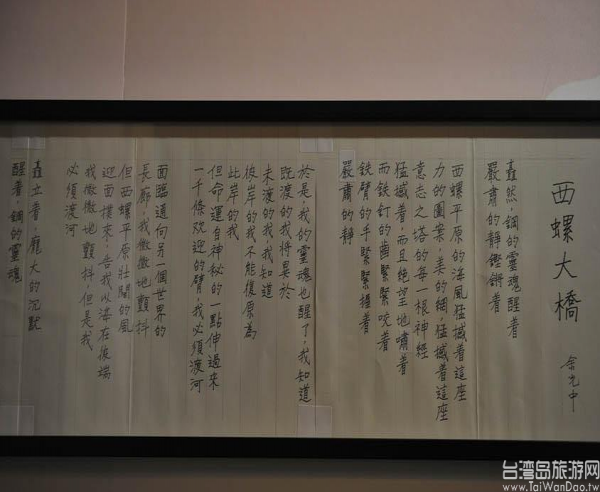 西螺大橋
余光中
矗然,鋼的靈魂醒着
嚴肅的靜鏗鏘着
西螺平原的海風猛撼着這座
力的圖案,美的網,猛撼着這座
意志之塔的每一根神經
猛撼着,而且絕望地嘯着
而鐵釘的齒緊緊咬着
鐵臂的手緊緊握着
嚴肅的靜
於是,我的靈魂也醒了,我知道
既渡的我將異於
未渡的我,我知道
彼岸的我不能復原為
此岸的我
但命運自神秘的一點伸過來
一千條歡迎的臂,我必須渡河
面臨通向另一個世界的
長廊,我微微地顫抖
但西螺平原壯闊的風
迎面撲來,告我以海在彼端
我微微地顫抖,但是我
必須渡河
矗立着,龐大的沉默
醒着,鋼的靈魂
台湾岛旅游网
www.TaiWanDao.tw